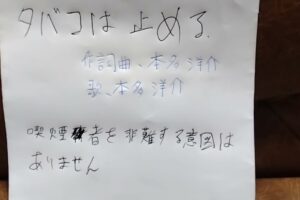 タバコは止める.
作詞曲、本名洋介
歌、本名洋介
喫煙者を非難する意図は
ありません